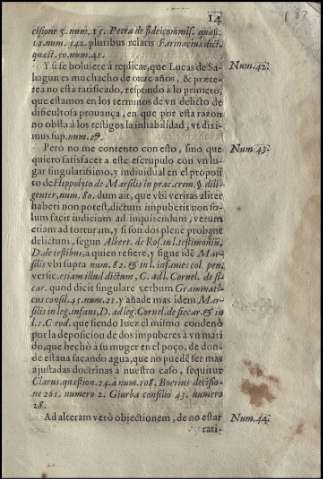 14
cisione 5. num. 15. Petra de fideicommis. quæst.
12. num. 542. pluribus relatis Farinacius dict.
quæst. 50. num. 42.
Y si se boluiere à replicar, que Lucas de Sa- Num. 42.
hagun es muchacho de onze años, & præte-
rea no està ratificado, respondo à lo primero,
que estamos en los terminos de vn delicto de
dificultosa prouança, en que por esta razon
no obsta à los testigos la inhabilidad, vt dixi-
mus sup. num.
Pero no me contento con esto, sino que Num. 43.
quiero satisfacer a este escrupulo con vn lu-
gar singularissimo, y indiuidual en el proposi-
to de Hippolyto de Marsilis in prac. crem. § dili-
genter, num. 80. dum ait, que vbi veritas aliter
haberi non potest, dictum impuberis non so-
lum facit indicium ad inquirendum, verum
etiam ad torturam, y si son dos plene probant
delictum, segun Albert. de Ros. in l. testimoniū,
D. de testibus, a quien refiere, y sigue idē Mar-
silis vbi supra num. 82. & in l. infames col. pen.
versic. etiam illud dictum, C. adl. Cornel. de si-
car. quod dicit singulare verbum Grammati-
cus consil. 45. num. 21. y añade mas idem Mar-
silis in leg. infans, D. ad leg. Cornel. de siccar. & in
l. 1. C eod. que siendo Iuez el mismo condenò
por la deposicion de dos impuberes à vn mari-
do, que hechò a su muger en el poço, de don-
de estaua sacando agua, que no puedē ser mas
ajustadas doctrinas à nuestro caso, sequitur
Clarus quæstion. 24. a num. 108. Boerius decisio-
ne 262. numero 2. Giurba consilio 43. numero
28.
Ad alteram verò objectionem, de no estar Num. 44.
rati-